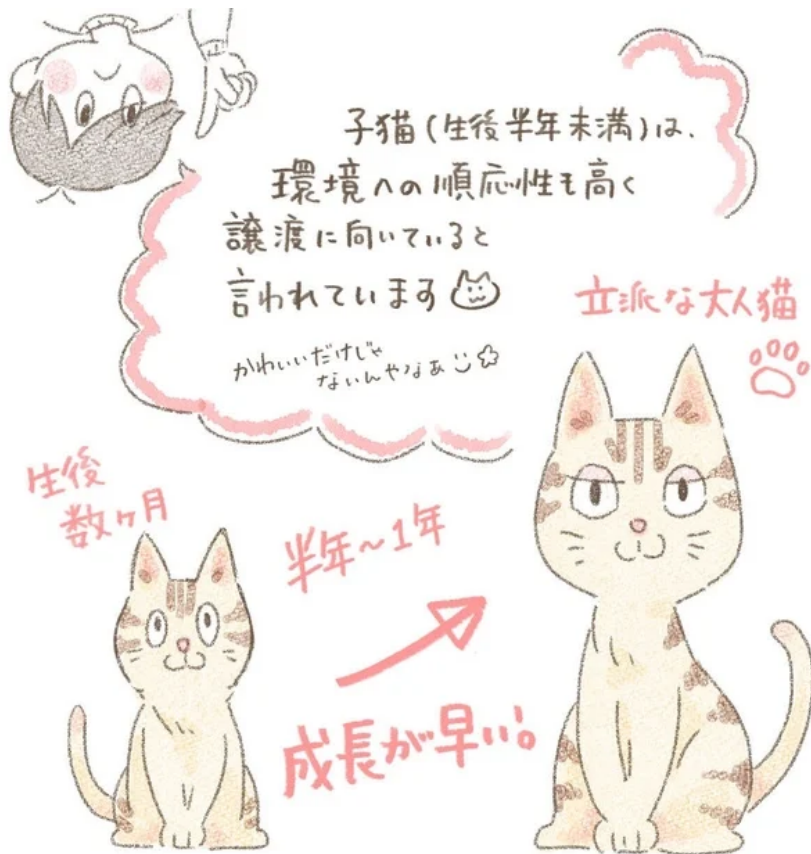 子猫(生後半年未満)は、
環境への順応性も高く
譲渡に向いていると
言われています
かわいいだけじゃ
ないんやなぁ
立派な大人猫
生後
数ヶ月
半年〜1年
成長が早い。